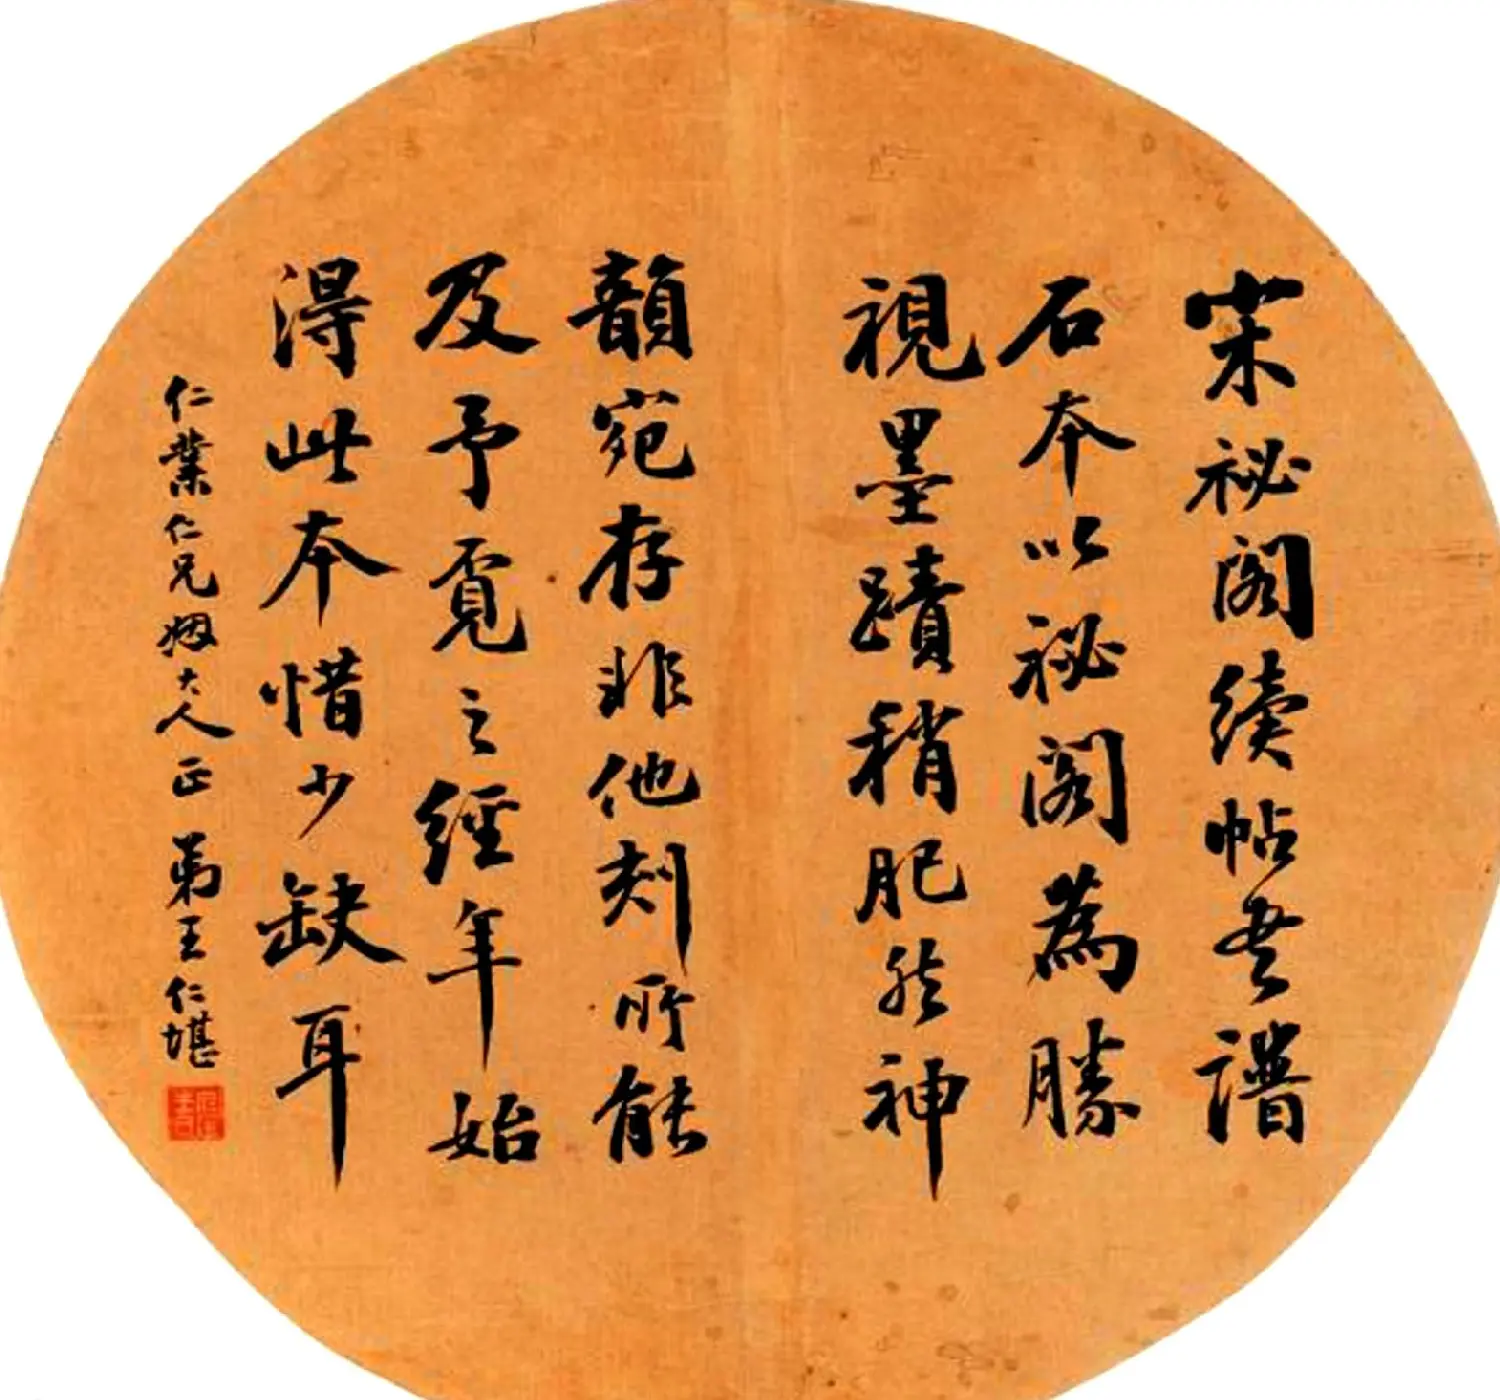 宋祕閣續帖書譜
石本以祕閣為勝
視墨蹟稍肥然神
韻宛存非他刻所能
及予覓之經年始
淂此本惜少缺耳
仁葉仁兄姻大人正 弟王仁堪